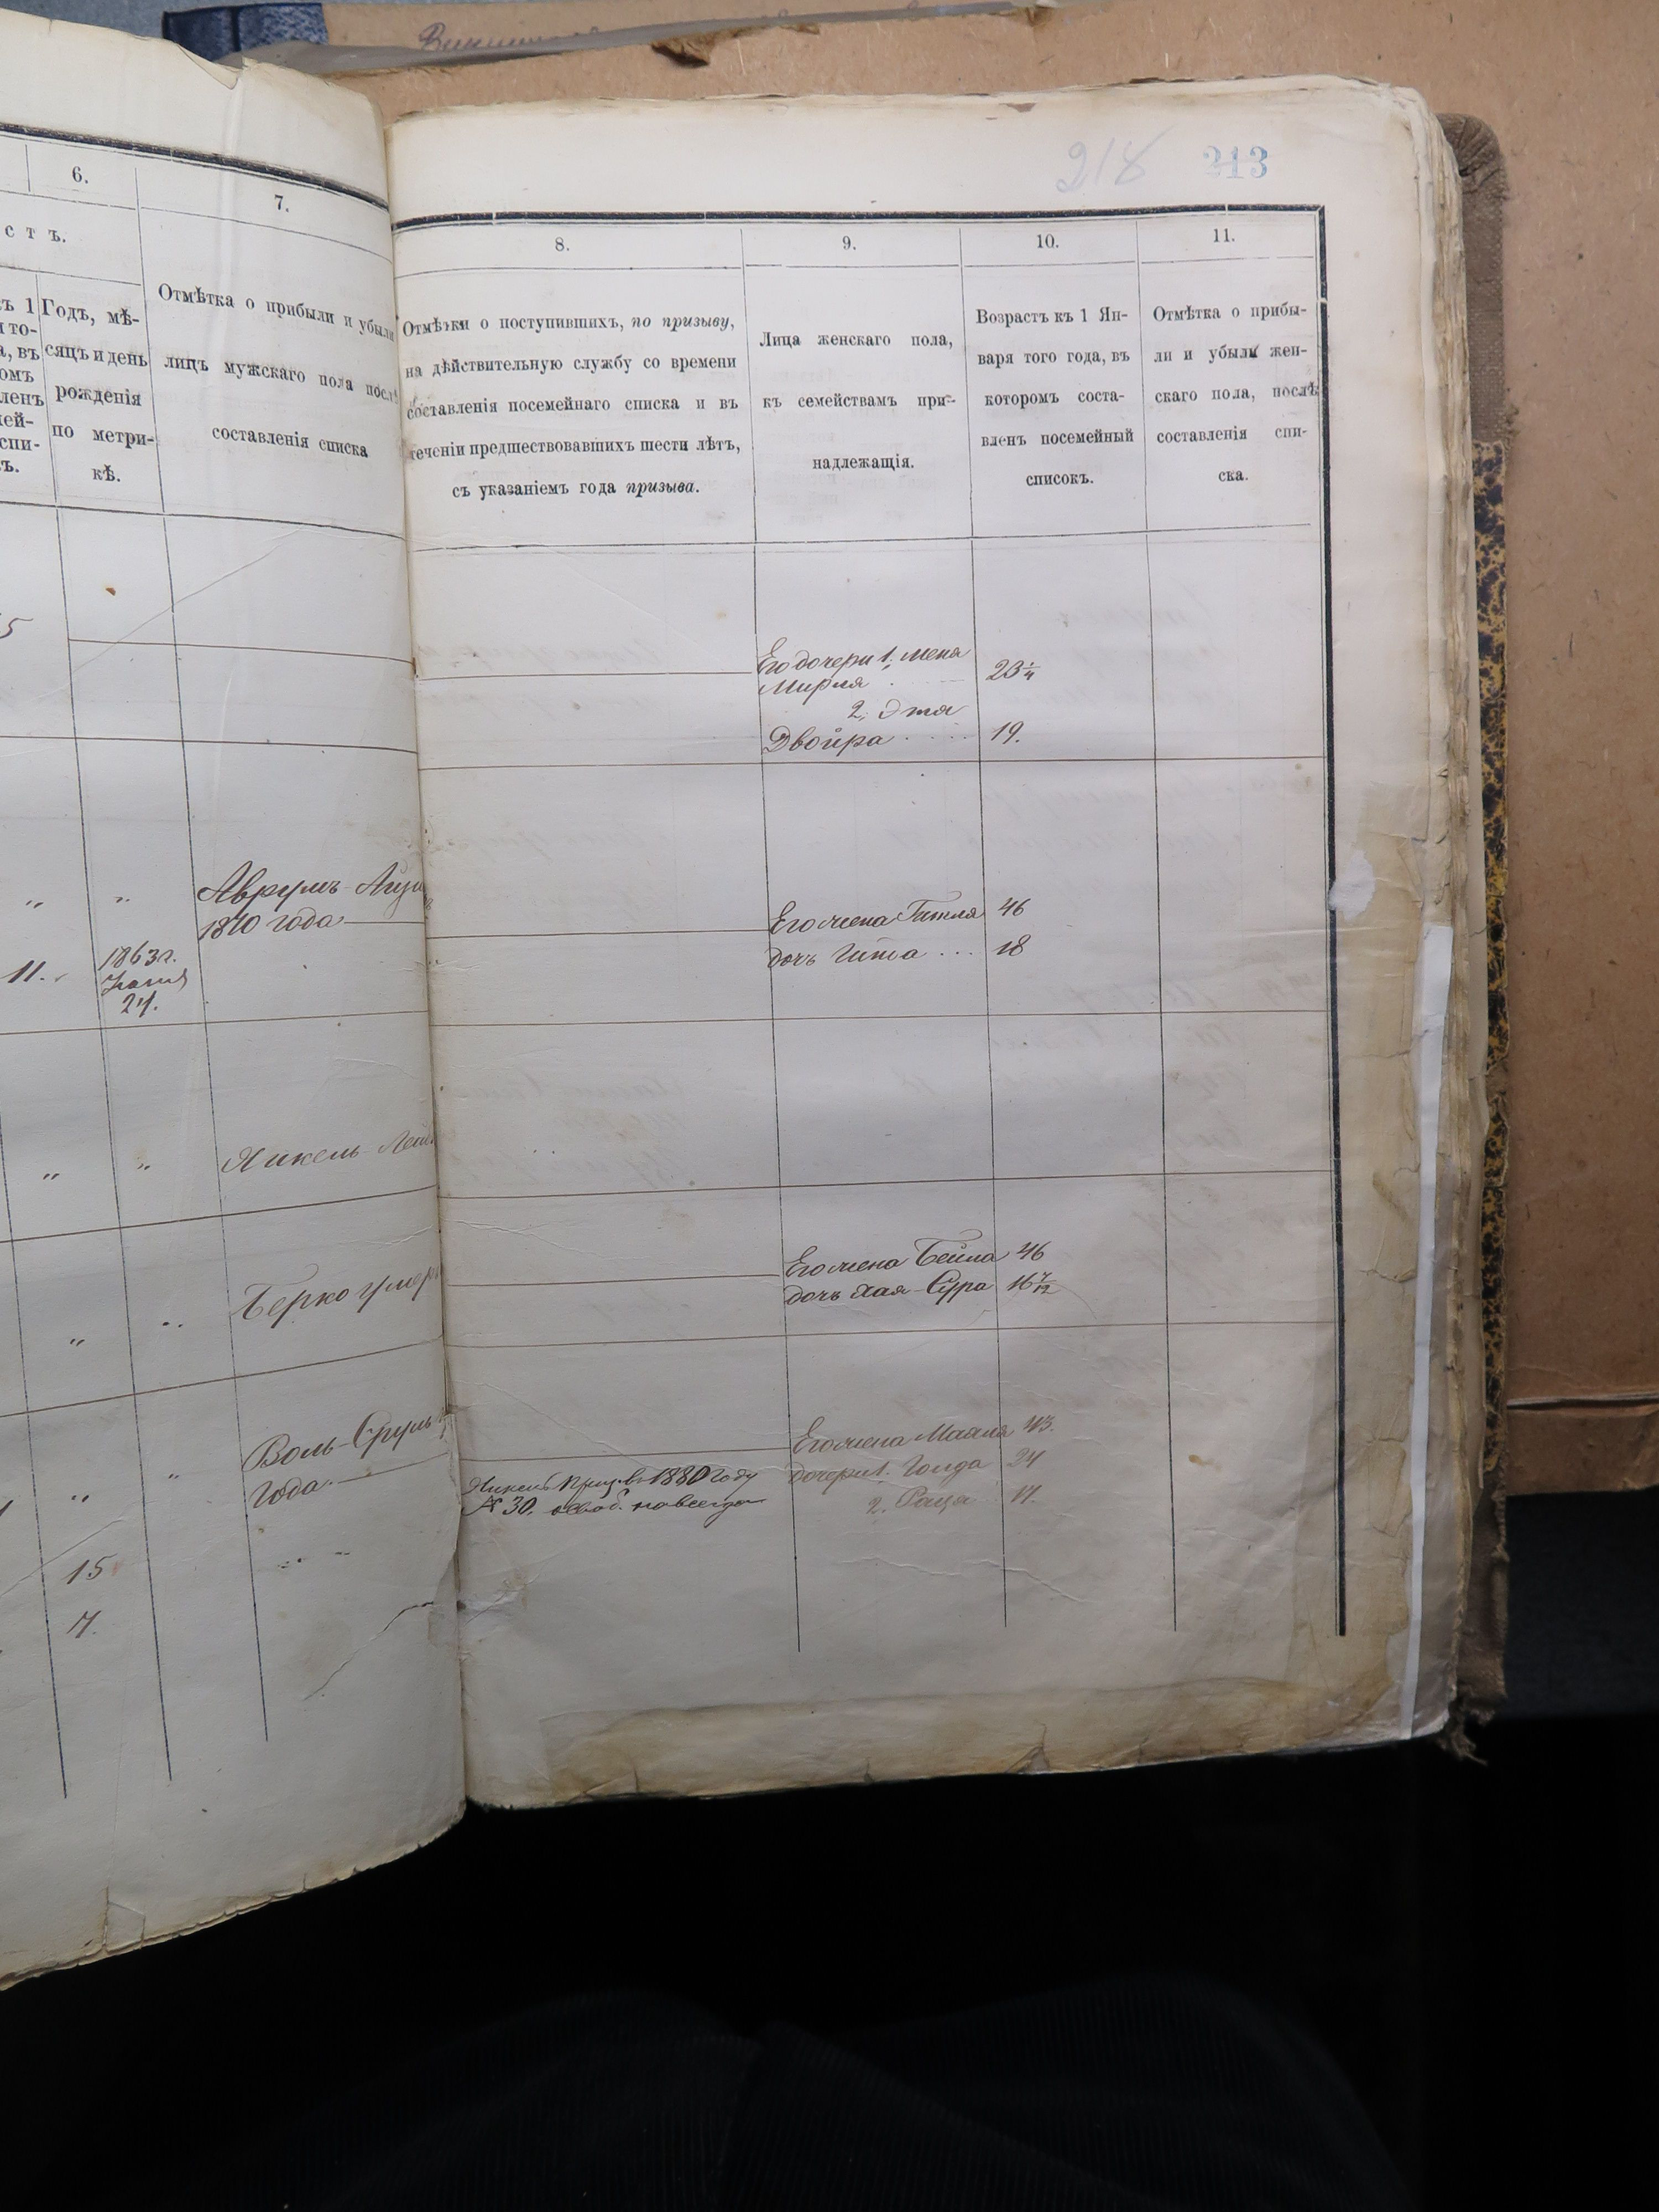 218 213
6.
7.
с т ъ.
Годъ, мѣ-
сяцъ и день
рожденія
по метри-
кѣ.
Отмѣтка о прибыли и убыли
лицъ мужскаго пола послѣ
составленія списка
8.
9.
10.
11.
Отмѣтки о поступившихъ, по призыву,
на дѣйствительную службу со времени
составленія посемейнаго списка и въ
теченіи предшествовавшихъ шести лѣтъ,
съ указаніемъ года призыва.
Лица женскаго пола,
къ семействамъ при-
надлежащія.
Возрастъ къ 1 Ян-
варя того года, въ
которомъ соста-
вленъ посемейный
списокъ.
Отмѣтка о прибы-
ли и убыли жен-
скаго пола, послѣ
составленія спи-
ска.
5
Его дочери 1. Меня
Мирля 23 1/4
2. Этя
Двойра 19.
" " Аврумъ-Айзи
1870 года
11. 1863 г.
24.
Его жена Гитля 46
дочь Шта 18
" " Янкель-Лей
" " Берко умер
Его жена Бейла 46
дочь Хая-Сура 16 7/12
" " Воль-Сруль
года
15
7.
Янкель Призв. 1880 году
№ 30. освоб. навсегда
Его жена Маля 43.
дочери 1. Голда 24
2. Раца 17.